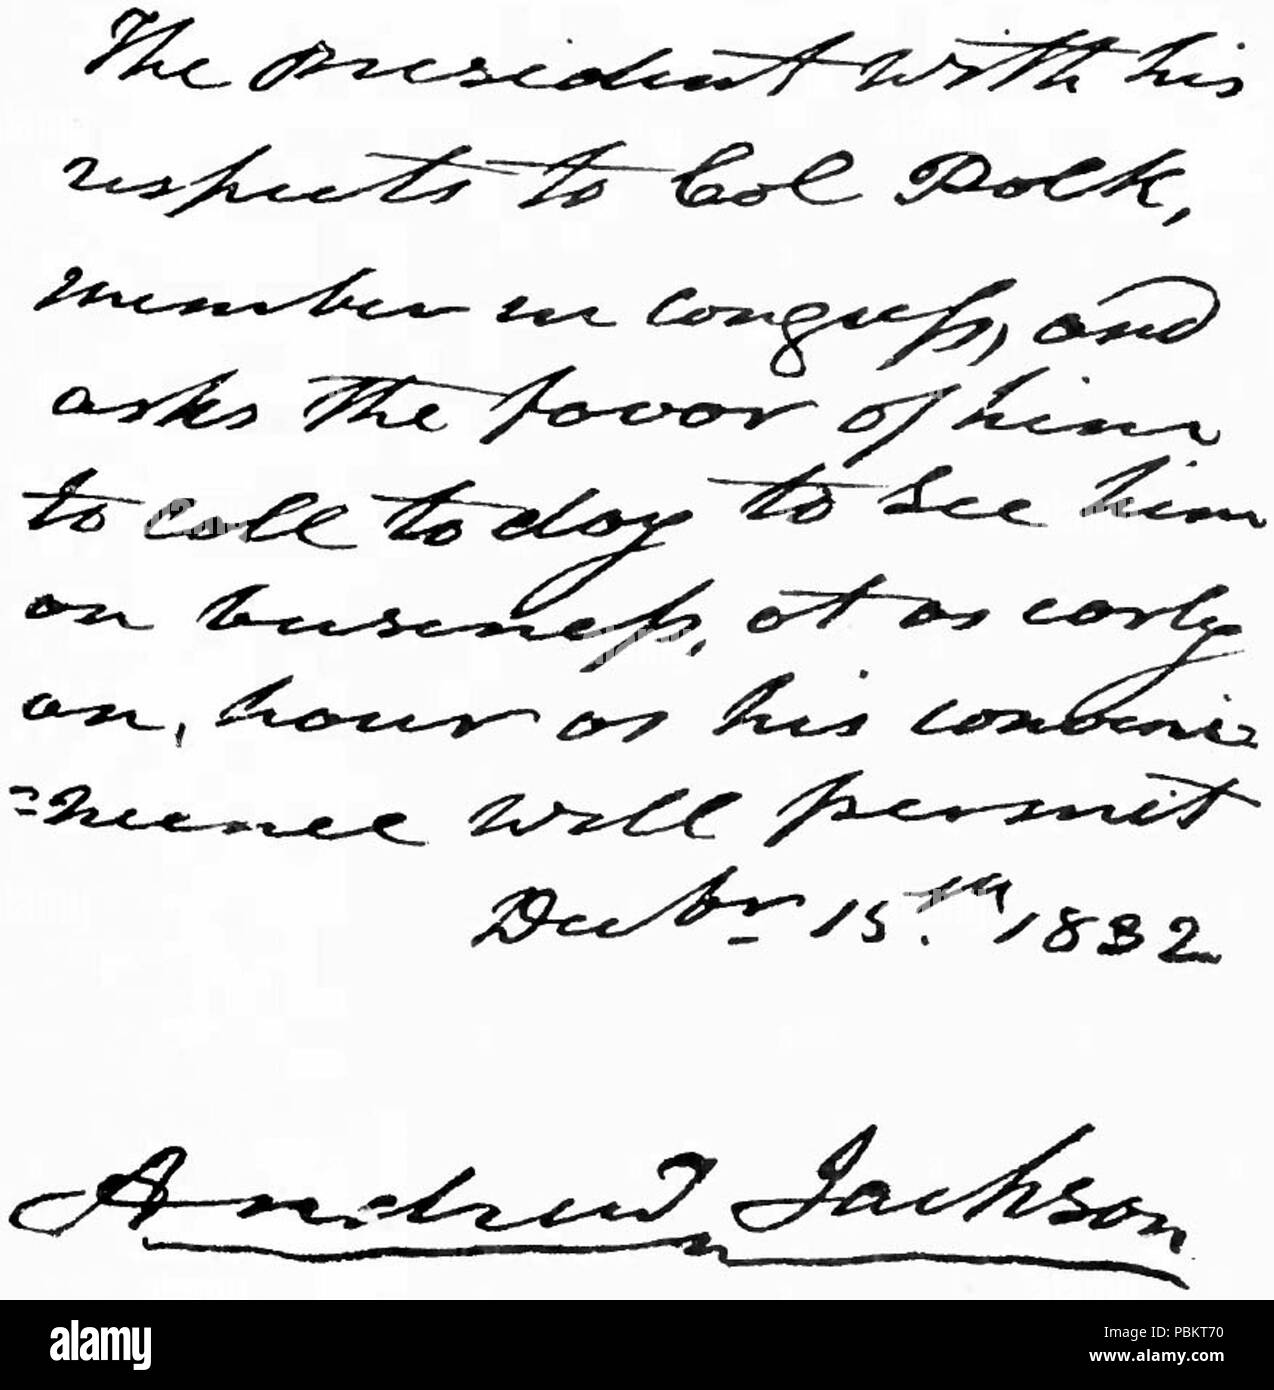 The President with his
respects to Col Polk,
member in congress, and
asks the favor of him
to call to day to see him
on business, at as early
an, hour as his conveni=
=neence will permit
Decbr 15.th 1832
Andrew Jackson
alamy
Image ID: PBKT70
www.alamy.com